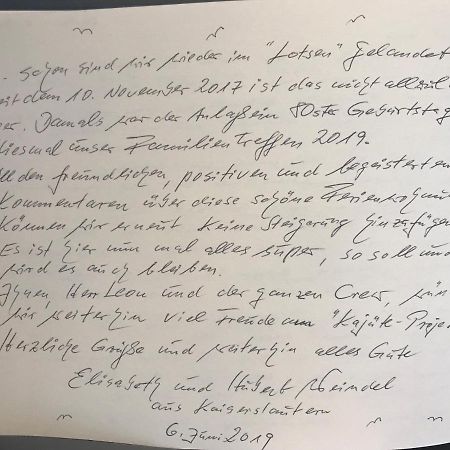 - schon sind wir wieder im "Lotsen" gelandet
seit dem 10. November 2017 ist das nicht allzu
her. Damals war der Anlaß ein 80ster Geburtstag
diesmal unser Familientreffen 2019.
All den freundlichen, positiven und begeisterten
Kommentaren über diese schöne Ferienwohnun
können wir erneut keine Steigerung hinzufügen
Es ist hier nun mal alles super, so soll und
wird es auch bleiben.
Ihnen, Herr Leon und der ganzen Crew, wün
wir weiterhin viel Freude am "Kajüte-Proje
Herzliche Grüße und weiterhin alles Gute
Elisabeth und Hubert
aus Kaiserslautern
6. Juni 2019